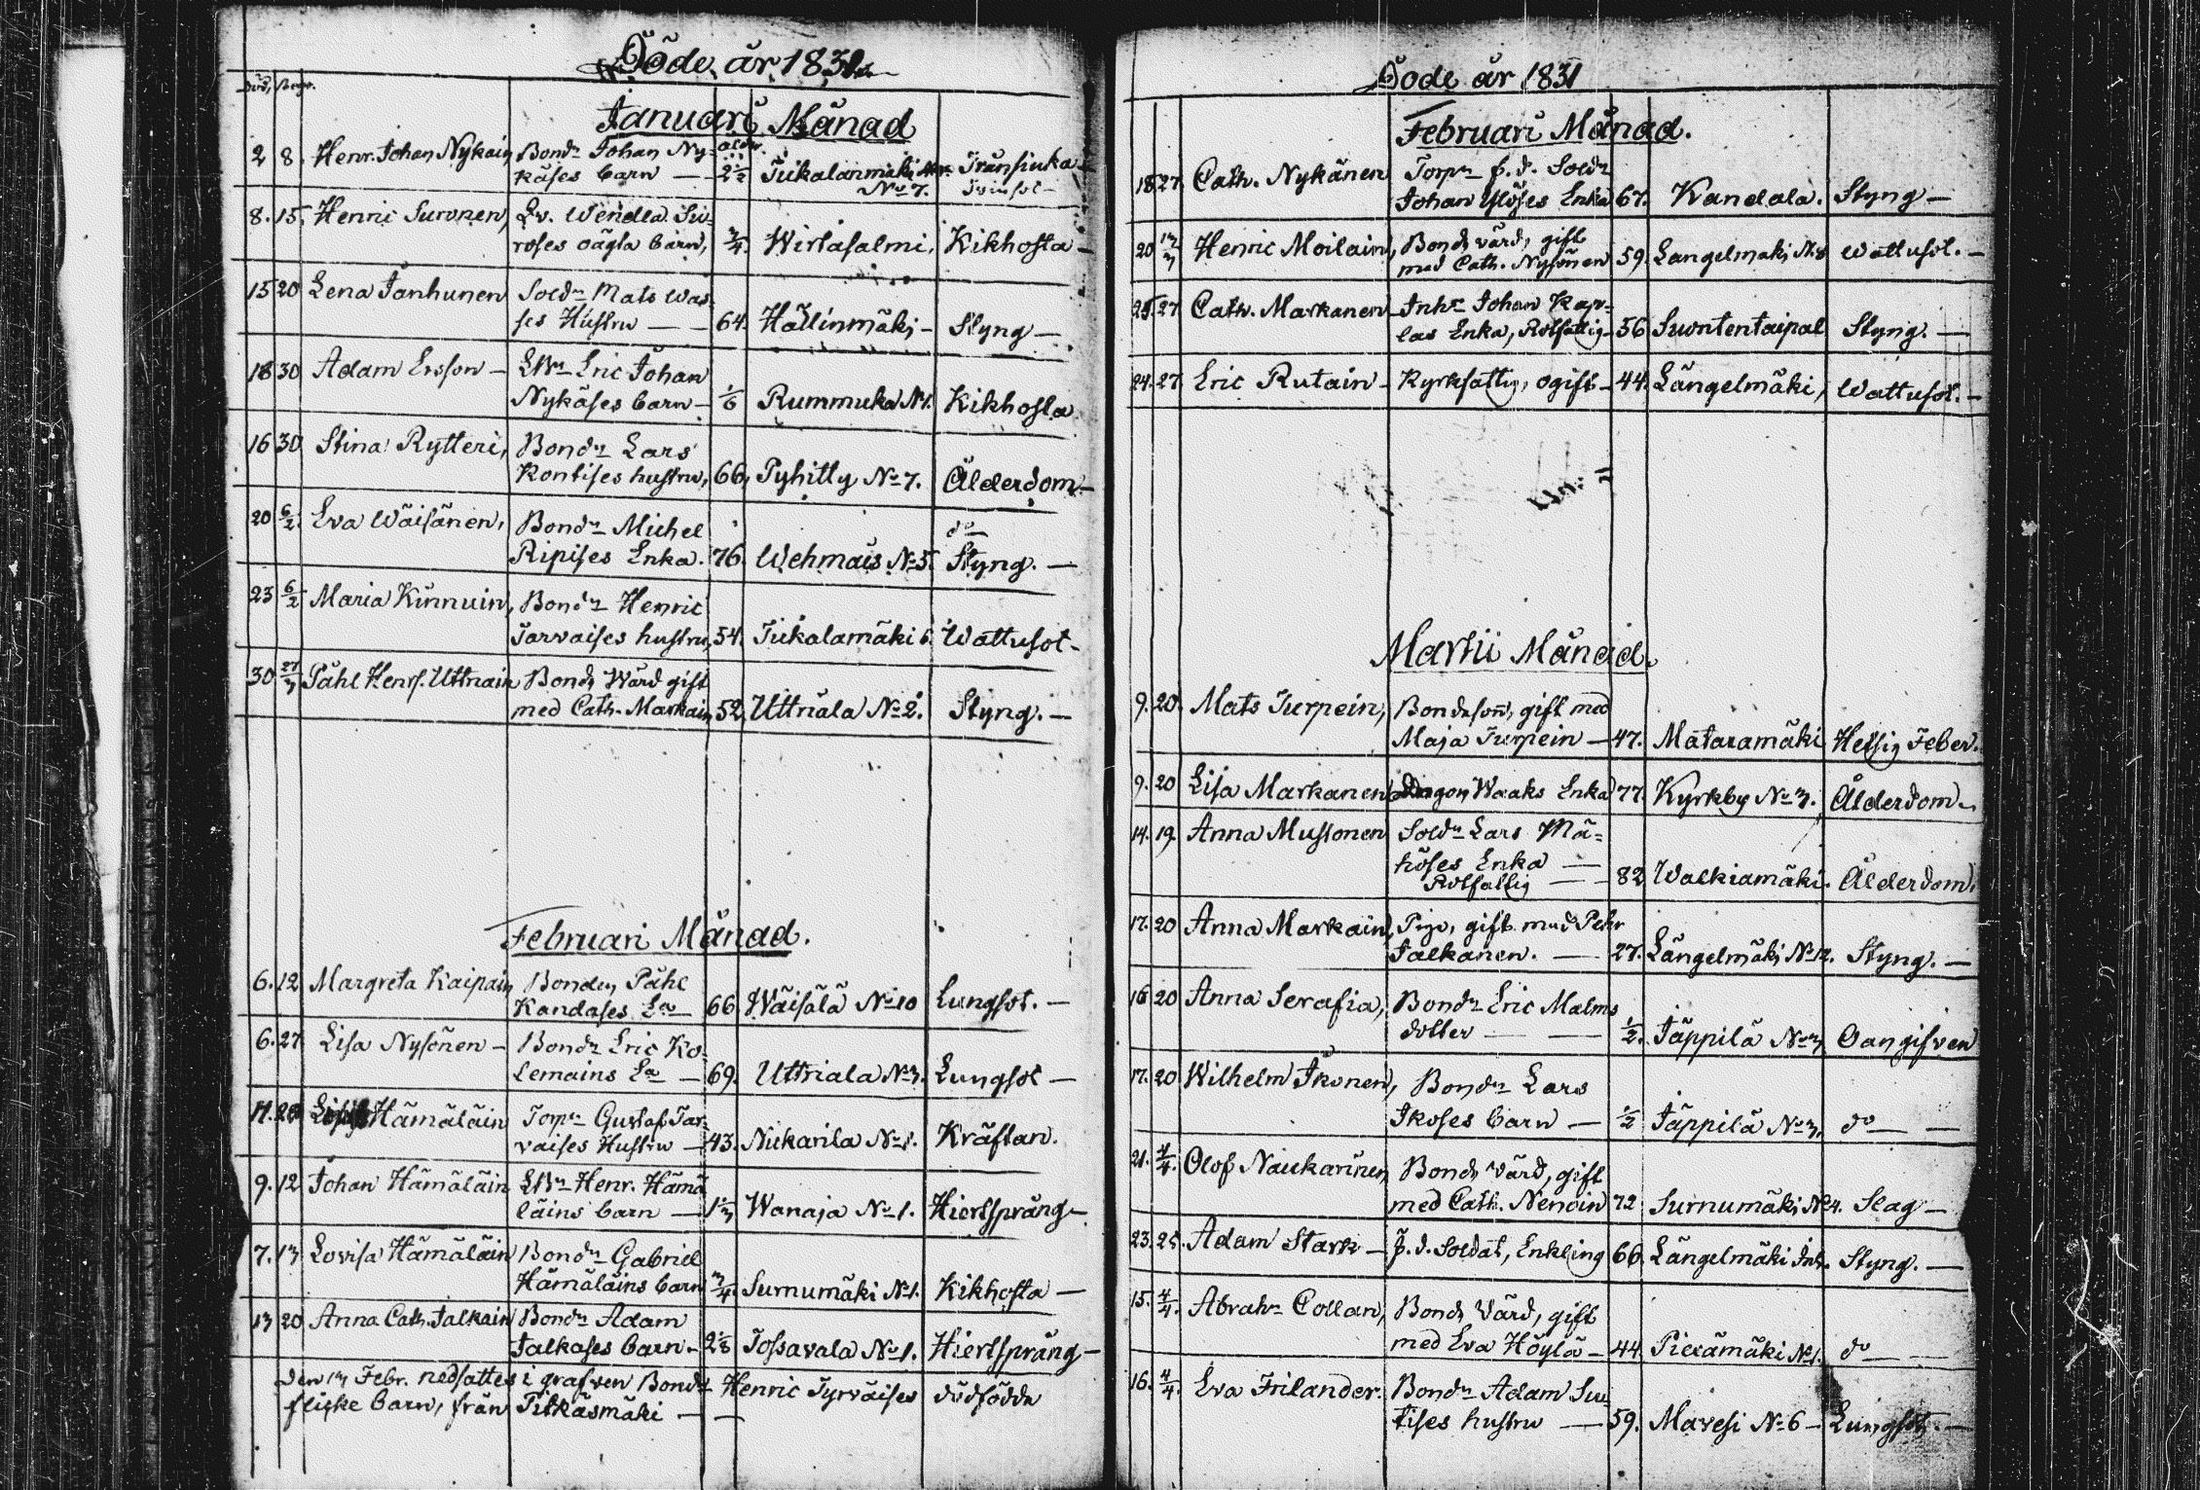 Döde år 1831
Död, Begr.
Januari Månad
ålder
2 8. Henr. Johan Nykäin Bondn Johan Ny-
käses barn — 2½ Jukalanmäki
No 7.
8. 15. Henric Survonen,
roses oägta barn, ¾. Wirtasalmi, Kikhosta —
15 20 Lena Janhunen Soldn Mats Was-
ses Hustru — 64. Hällinmäki — Styng —
18 30 Adam Ersson — LBn Eric Johan
Nykäses barn — 1/6 Rummuka N1. Kikhosta
16 30 Stina Rytteri, Bondn Lars
Kontises hustru, 66, Pyhitty No 7. Ålderdom —
20 6/2. Eva Wäisänen, Bondn Michel do
Ripises Enka. 76. Wehmais No 5. Styng. —
23 6/2 Maria Kinnuin, Bondn Henric
Tarvaises hustru, 54. Jukalamäki 6. Wattusot —
30 27/3 Påhl Henrs. Uttriain Bonde Wärd gift
med Cath. Markain, 52, Uttriala No 2. Styng. —
Februari Månad.
6. 12 Margreta Kaipain Bonden Påhl
Kandases Ea 66 Wäisälä No 10 Lungsot. —
6. 27 Lisa Nysönen — Bondn Eric Ko-
lemains Ea — 69. Uttriala No 3. Lungsot —
Hämäläin Torpn Gustaf Tar-
vaises Hustru — 43. Nikarila No 1. Kräftan.
9. 12 Johan Hämäläin LBn Henr. Hämä
läins barn — 1⅓ Wanaja No 1. Hiertspräng —
7. 13 Lovisa Hämäläin Bondn Gabriel
Hämäläins barn ¾. Surnumäki No 1. Kikhosta —
13 20 Anna Cath. Jalkain Bondn Adam
Jalkases barn — Tossavala No 1. Hiertspräng —
den 13 Febr. nedsattes i grafven Bondn Henric Tyrväises dödfödda
flicke barn, från Pitkäsmäki — —
Döde år 1831
Februari Månad.
18 27. Cath. Nykänen Torpn f. d. Soldn
Johan Ylöses Enka 67. Kandala. Styng —
20 13/3 Henric Moilain, Bonde värd, gift
med Cath. Nysönen 59. Längelmäki No 8 Wattusot. —
25. 27. Cath. Markanen — Inhs Johan Kap-
las Enka, Rotfattig — 56 Suontentaipal Styng. —
24. 27. Eric Rutain — Kyrkfattig, ogift — 44. Längelmäki, Wattusot. —
Martii Månad.
9. 20. Mats Turpein, Bondeson, gift med
Maja Turpein — 47. Mataramäki Hetsig Feber.
9. 20 Lisa Markanen Waaks Enka 77. Kyrkby No 3. Ålderdom —
14. 19. Anna Mustonen Soldn Lars Mä-
höses Enka —
Rotfattig — 82 Walkiamäki. Ålderdom.
17. 20 Anna Markain, Piga, gift med Pehr
Jalkanen. — 27. Längelmäki No 12. Styng. —
16 20 Anna Serafia, Bondn Eric Malms
dotter — ½. Jäppilä No 3, Oangifven
17. 20 Wilhelm Ikonen, Bondn Lars
Ikoses barn — ½ Jäppilä No 3. do —
21. 4/4. Olof Naukarinen, Bonde värd, gift
med Cath. Nenoin 72 Surnumäki No 4. Slag —
23. 25. Adam Stark — f. d. Soldat, Enkling 66. Längelmäki Inh. Styng. —
15. 4/4. Abrahm Collan, Bonde värd, gift
med Eva Höylä — 44. Piexämäki No 1. do —
16. 4/4. Eva Frilander. Bondn Adam Su-
tises hustru — 59. Maresi No 6 — Lungsot. —